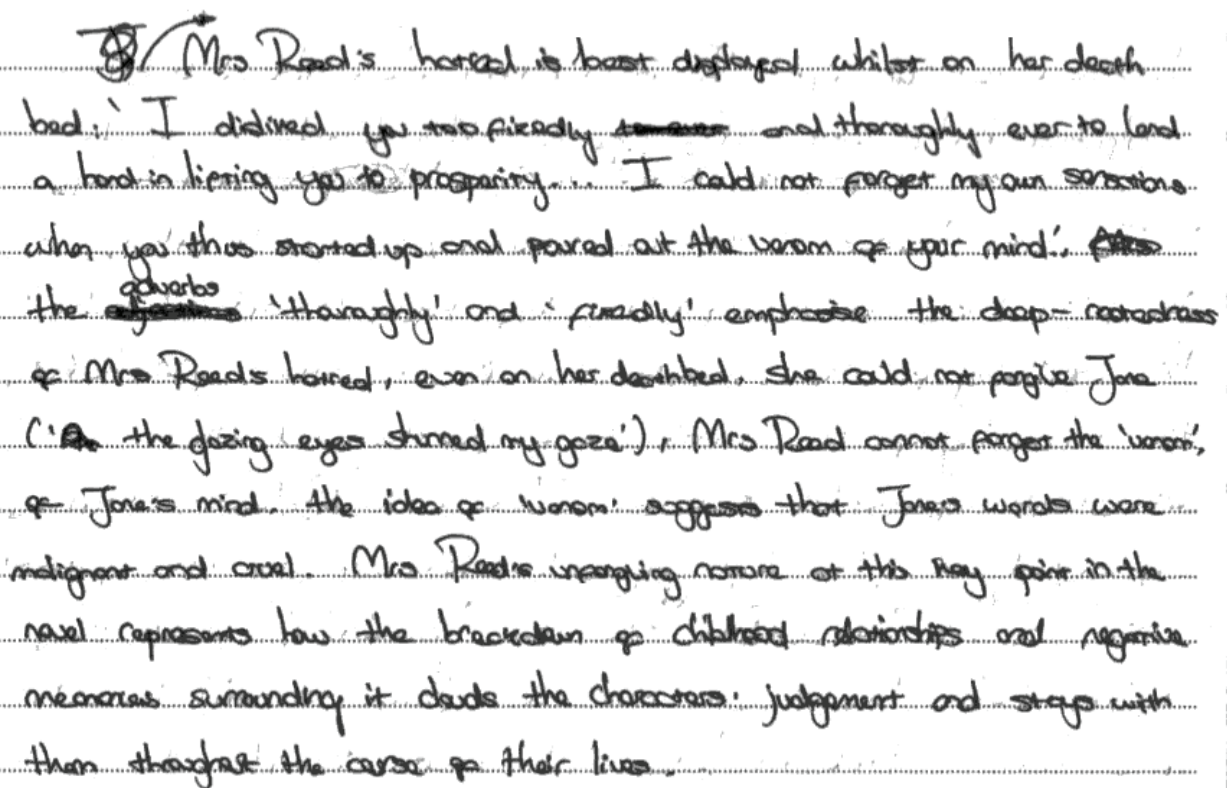 Mrs Reed's hatred is best displayed whilst on her death
bed: 'I disliked you too fixedly and thoroughly ever to lend
a hand in lifting you to prosperity... I could not forget my own sensations
when you thus started up and poured out the venom of your mind',
the adverbs 'thoroughly' and 'fixedly' emphasise the deep-rootedness
of Mrs Reeds hatred, even on her deathbed. She could not forgive Jane
('the glazing eyes shunned my gaze'), Mrs Reed cannot forget the 'venom',
of Jane's mind. The idea of 'venom' suggests that Jane's words were
malignant and cruel. Mrs Reed's unforgiving nature at this key point in the
novel represents how the breakdown of childhood relationships and negative
memories surrounding it clouds the characters' judgement and stays with
them throughout the course of their lives.